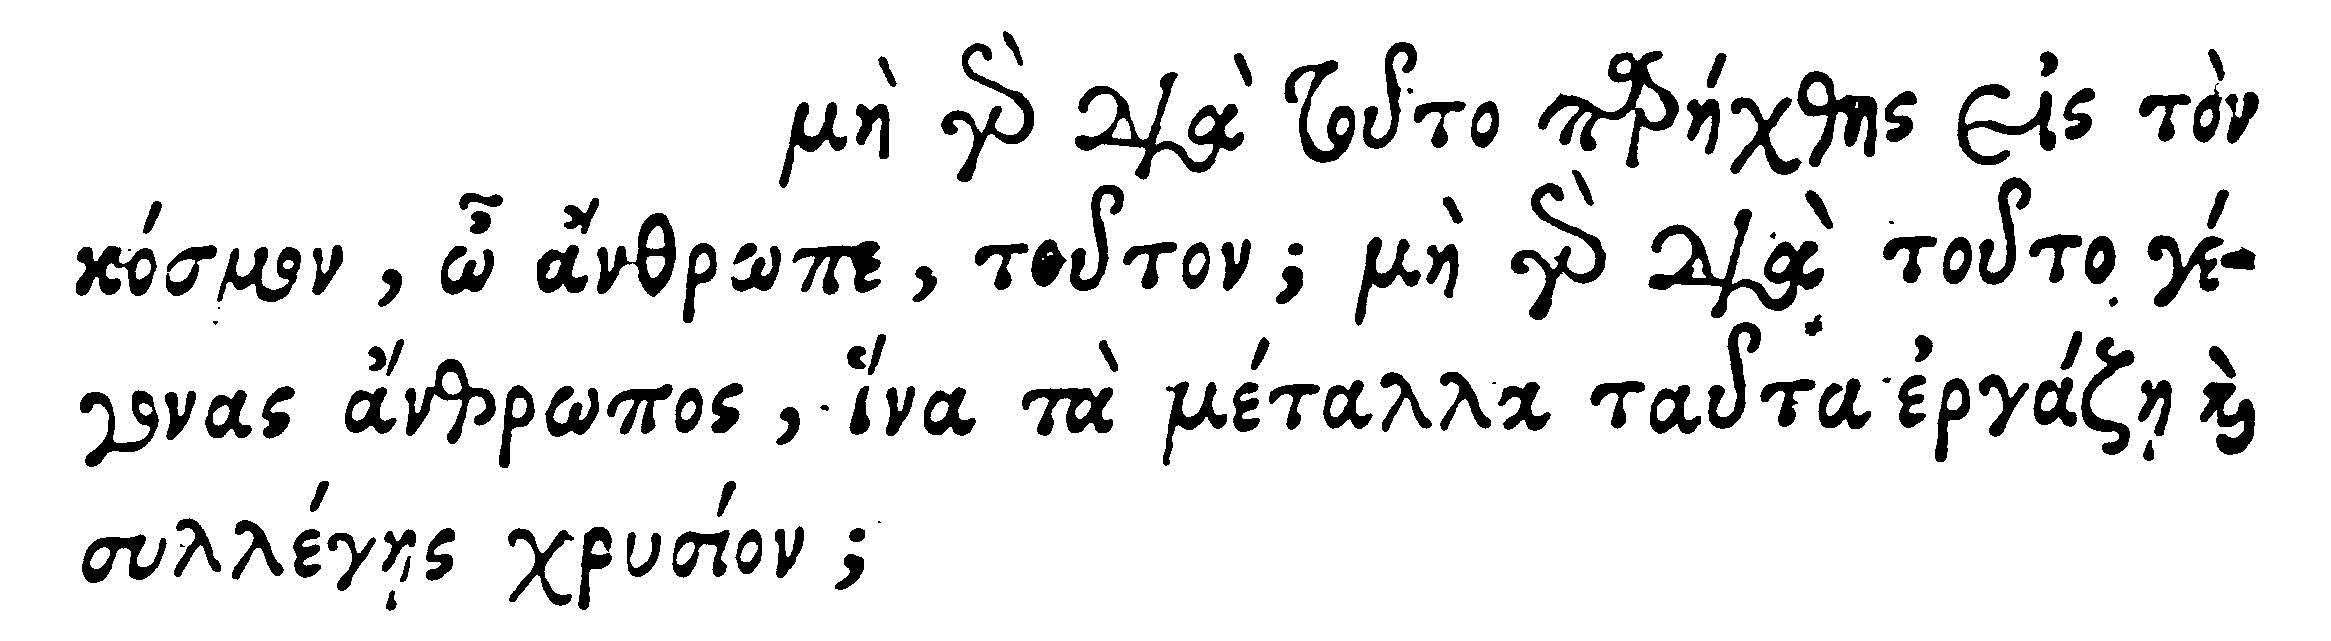 μὴ γὰρ διὰ τοῦτο παρήχθης εἰς τὸν
κόσμον, ὦ ἄνθρωπε, τοῦτον; μὴ γὰρ διὰ τοῦτο γέ-
γονας ἄνθρωπος, ἵνα τὰ μέταλλα ταῦτα ἐργάζῃ καὶ
συλλέγῃς χρυσίον;